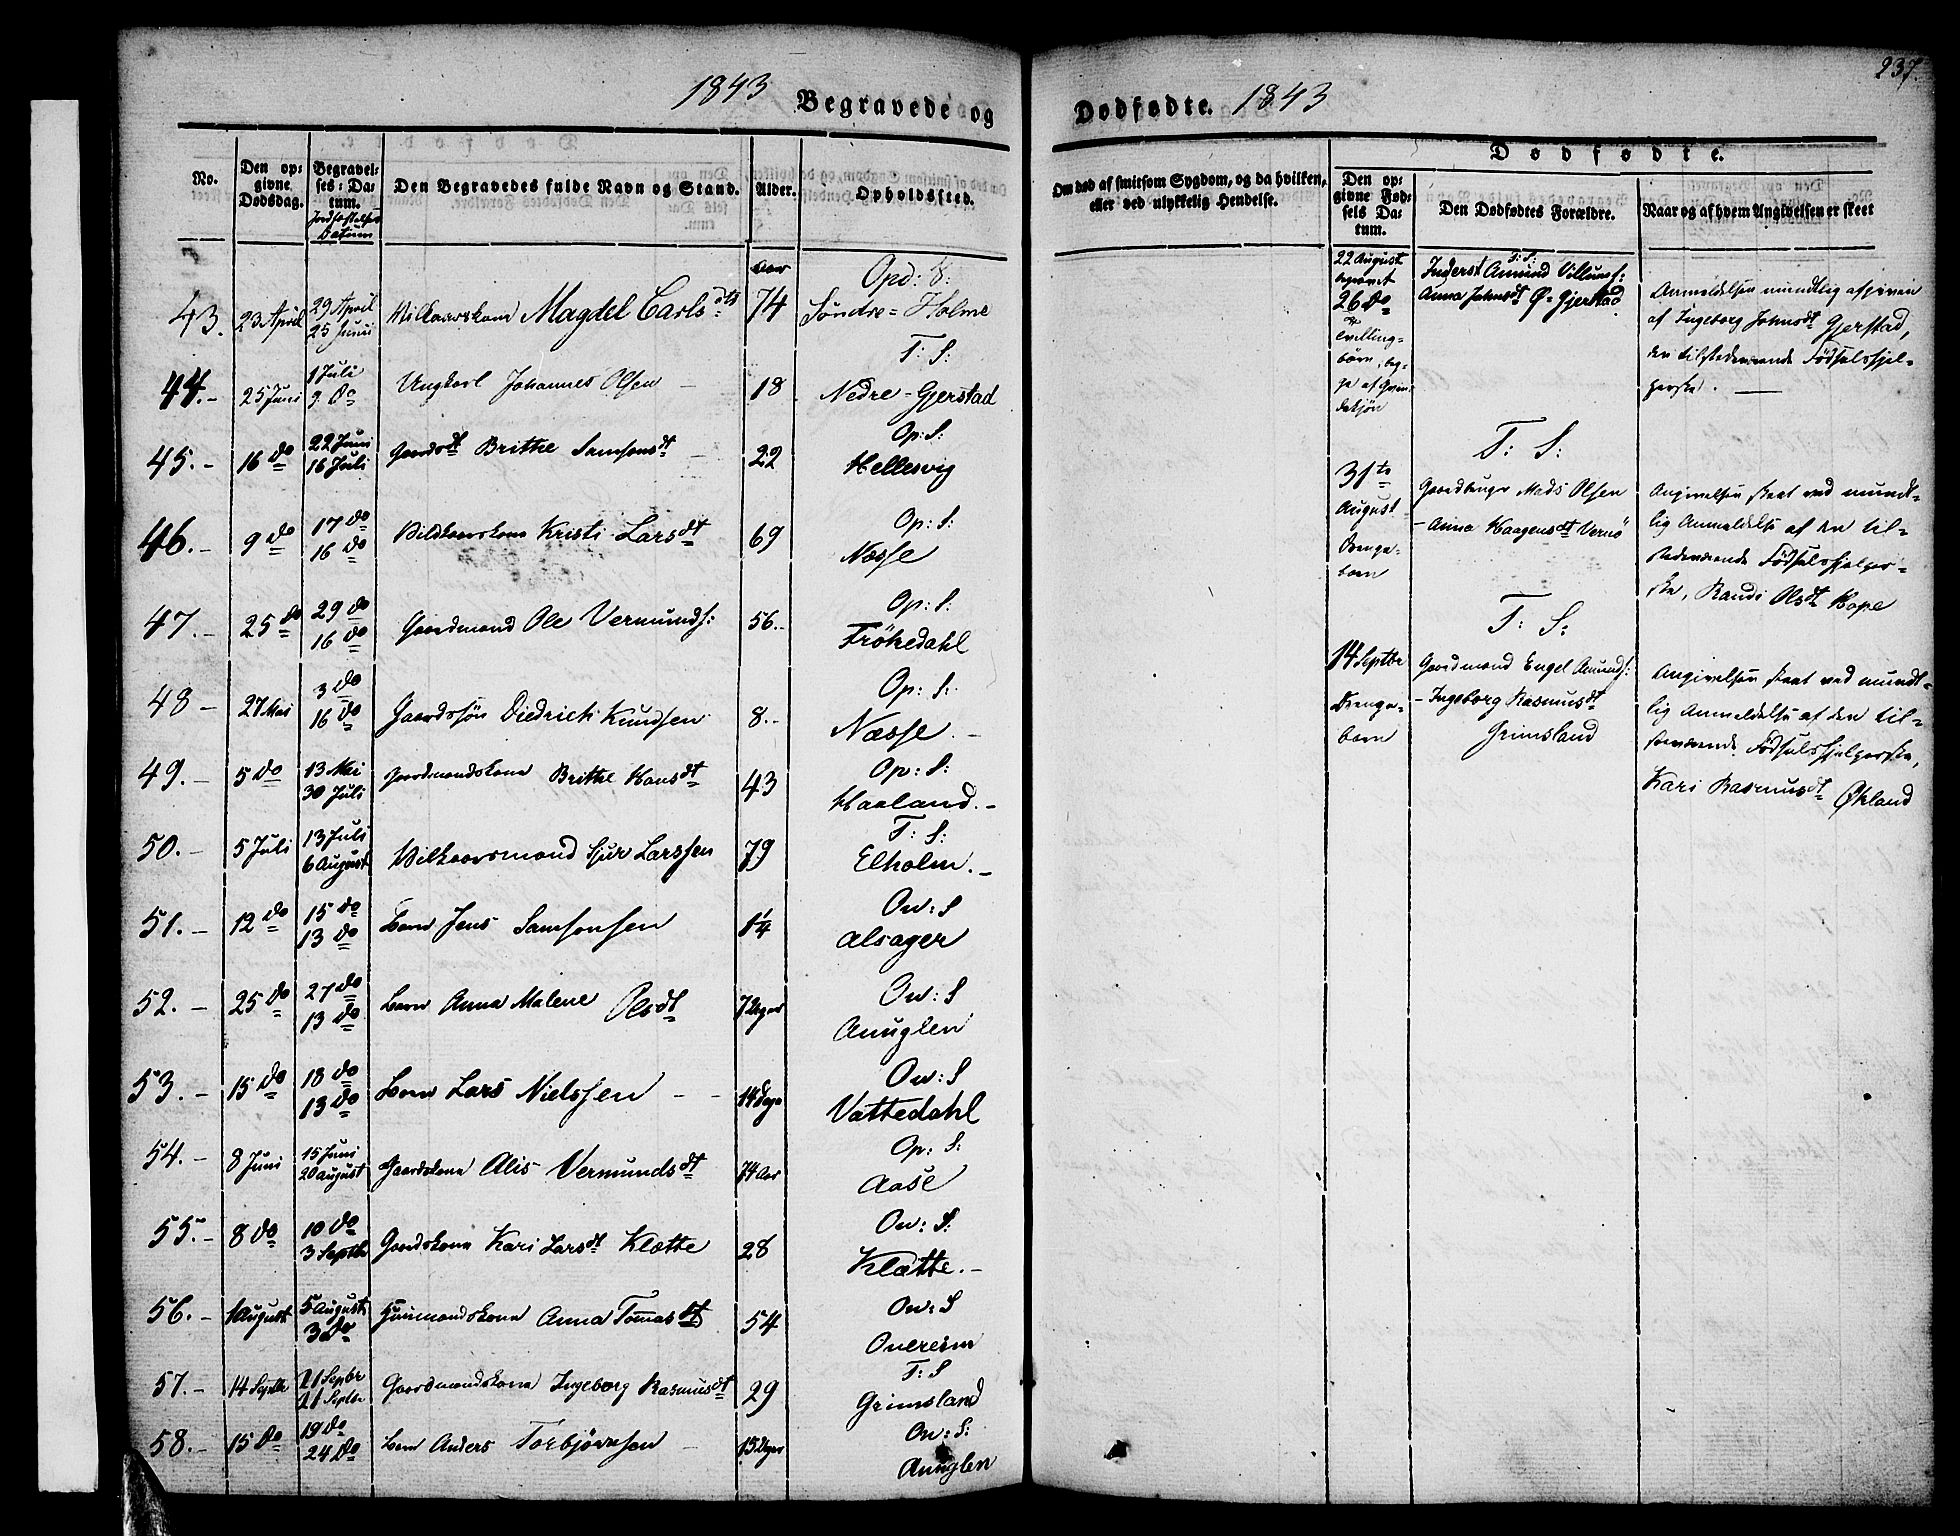 1843 Begravede og
No.
Den opgivne Dødsdag.
Begravelses-Datum.
Jordfæstelses Datum
Den Begravedes fulde Navn og Stand.
Alder.
Opholdssted.
43. 23 April 29 April 25 Juni Vilkaarskone Magdel Carlsdtr 74 Aar Opd: S: Søndre=Holme
44. 25 Juni 1 Juli 9 Do Ungkarl Johannes Olsen 18 T: S: Nedre-Gjerstad
45. 16 Do 22 Juni 16 Juli Gaardsdt Brithe Samsonsdt 22 Op: S: Hellesvig
46. 9 Do 17 Do 16 Do Vilkaarskone Kristi Larsdt 69 Op: S: Næsse
47. 25 Do 29 Do 16 Do Gaardmand Ole Vermunds: 56 Op: S: Frökedahl
48 27 Mai 3 Do 16 Do Gaardssön Diedrich Knudsen 8 Op: S: Næsse
49. 5 Do 13 Mai 30 Juli Gaardmandskone Brithe Hansdt 43 Op: S: Haaland
50. 5 Juli 13 Juli 6 August Vilkaarsmand Sjur Larssen 79 T: S: Elholm
51. 12 Do 15 Do 13 Do Barn Jens Samsonsen 1/4 Ow: S Alsager
52. 25 Do 27 Do 13 Do Barn Anna Malene Olsdt 7 Uger Ow: S Anuglen
53. 15 Do 18 Do 13 Do Barn Lars Nielssen 14 Dage Ow: S Vattedahl
54. 8 Juni 15 Juni 20 August Gaardskone Alis Vermundsdt 74 Aar Op: S: Aase
55. 8 Do 10 Do 3 Septbr Gaardskone Kari Larsdt Klætte 28 Ow: S: Klætte.
56. 1 August 5 August 3 Do Huusmandskone Anna Tomasdt 54 Ow: S Ovreim
57. 14 Septbr 21 Septbr 21 Septbr Gaardmandskone Ingeborg Rasmusdt 29 T: S Grimsland
58. 15 Do 19 Do 24 Do Barn Anders Torbjörnsen 15 Dage Ow: S: Anuglen
237.
Dødfødte. 1843
Om død af smitsom Sygdom, og da hvilken, eller ved ulykkelig Hendelse.
Dødfødte.
Den opgivne Fødsels Datum.
Den Dødfødtes Forældre.
Naar og af hvem Angivelsen er skeet
22 August begravet 26 Do
Tvillingbörn
T: S:
Inderst Amund Villums:
Anna Johnsdt Ø=Gjerstad
Anmeldelsen mundtlig afgiven
af Ingeborg Johnsdt Gjerstad,
den tilstedeværende Födselshjelperske.
31te August Drengebarn
T: S:
Gaardbruger Mads Olsen
- Anna Haagensdt Vernö
Angivelsen skeet ved mundtlig
Anmeldelse af den tilstedeværende
Födselshjelperske,
Randi Olsdt Hope
14 Septbr Drengebarn
T: S:
Gaardmand Engel Amunds:
- Ingeborg Rasmusdt
Grimsland
Angivelsen skeet ved mundtlig
Anmeldelse af den tilstedeværende
Födselshjelperske,
Kari Rasmusdt Økland